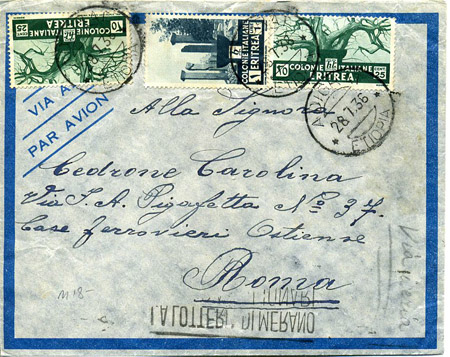 10 COLONIE ITALIANE 25 CENT
ERITREA
COLONIE ITALIANE
1 ERITREA
10 COLONIE ITALIANE 25
ERITREA
28.7.36
* ETIOPIA *
VIA
PAR AVION
Alla Signora
Cedrone Carolina
Via F. A. Pigafetta No 37
Case ferrovieri Ostiense
Roma
LA LOTTERIA DI MERANO
M 18-